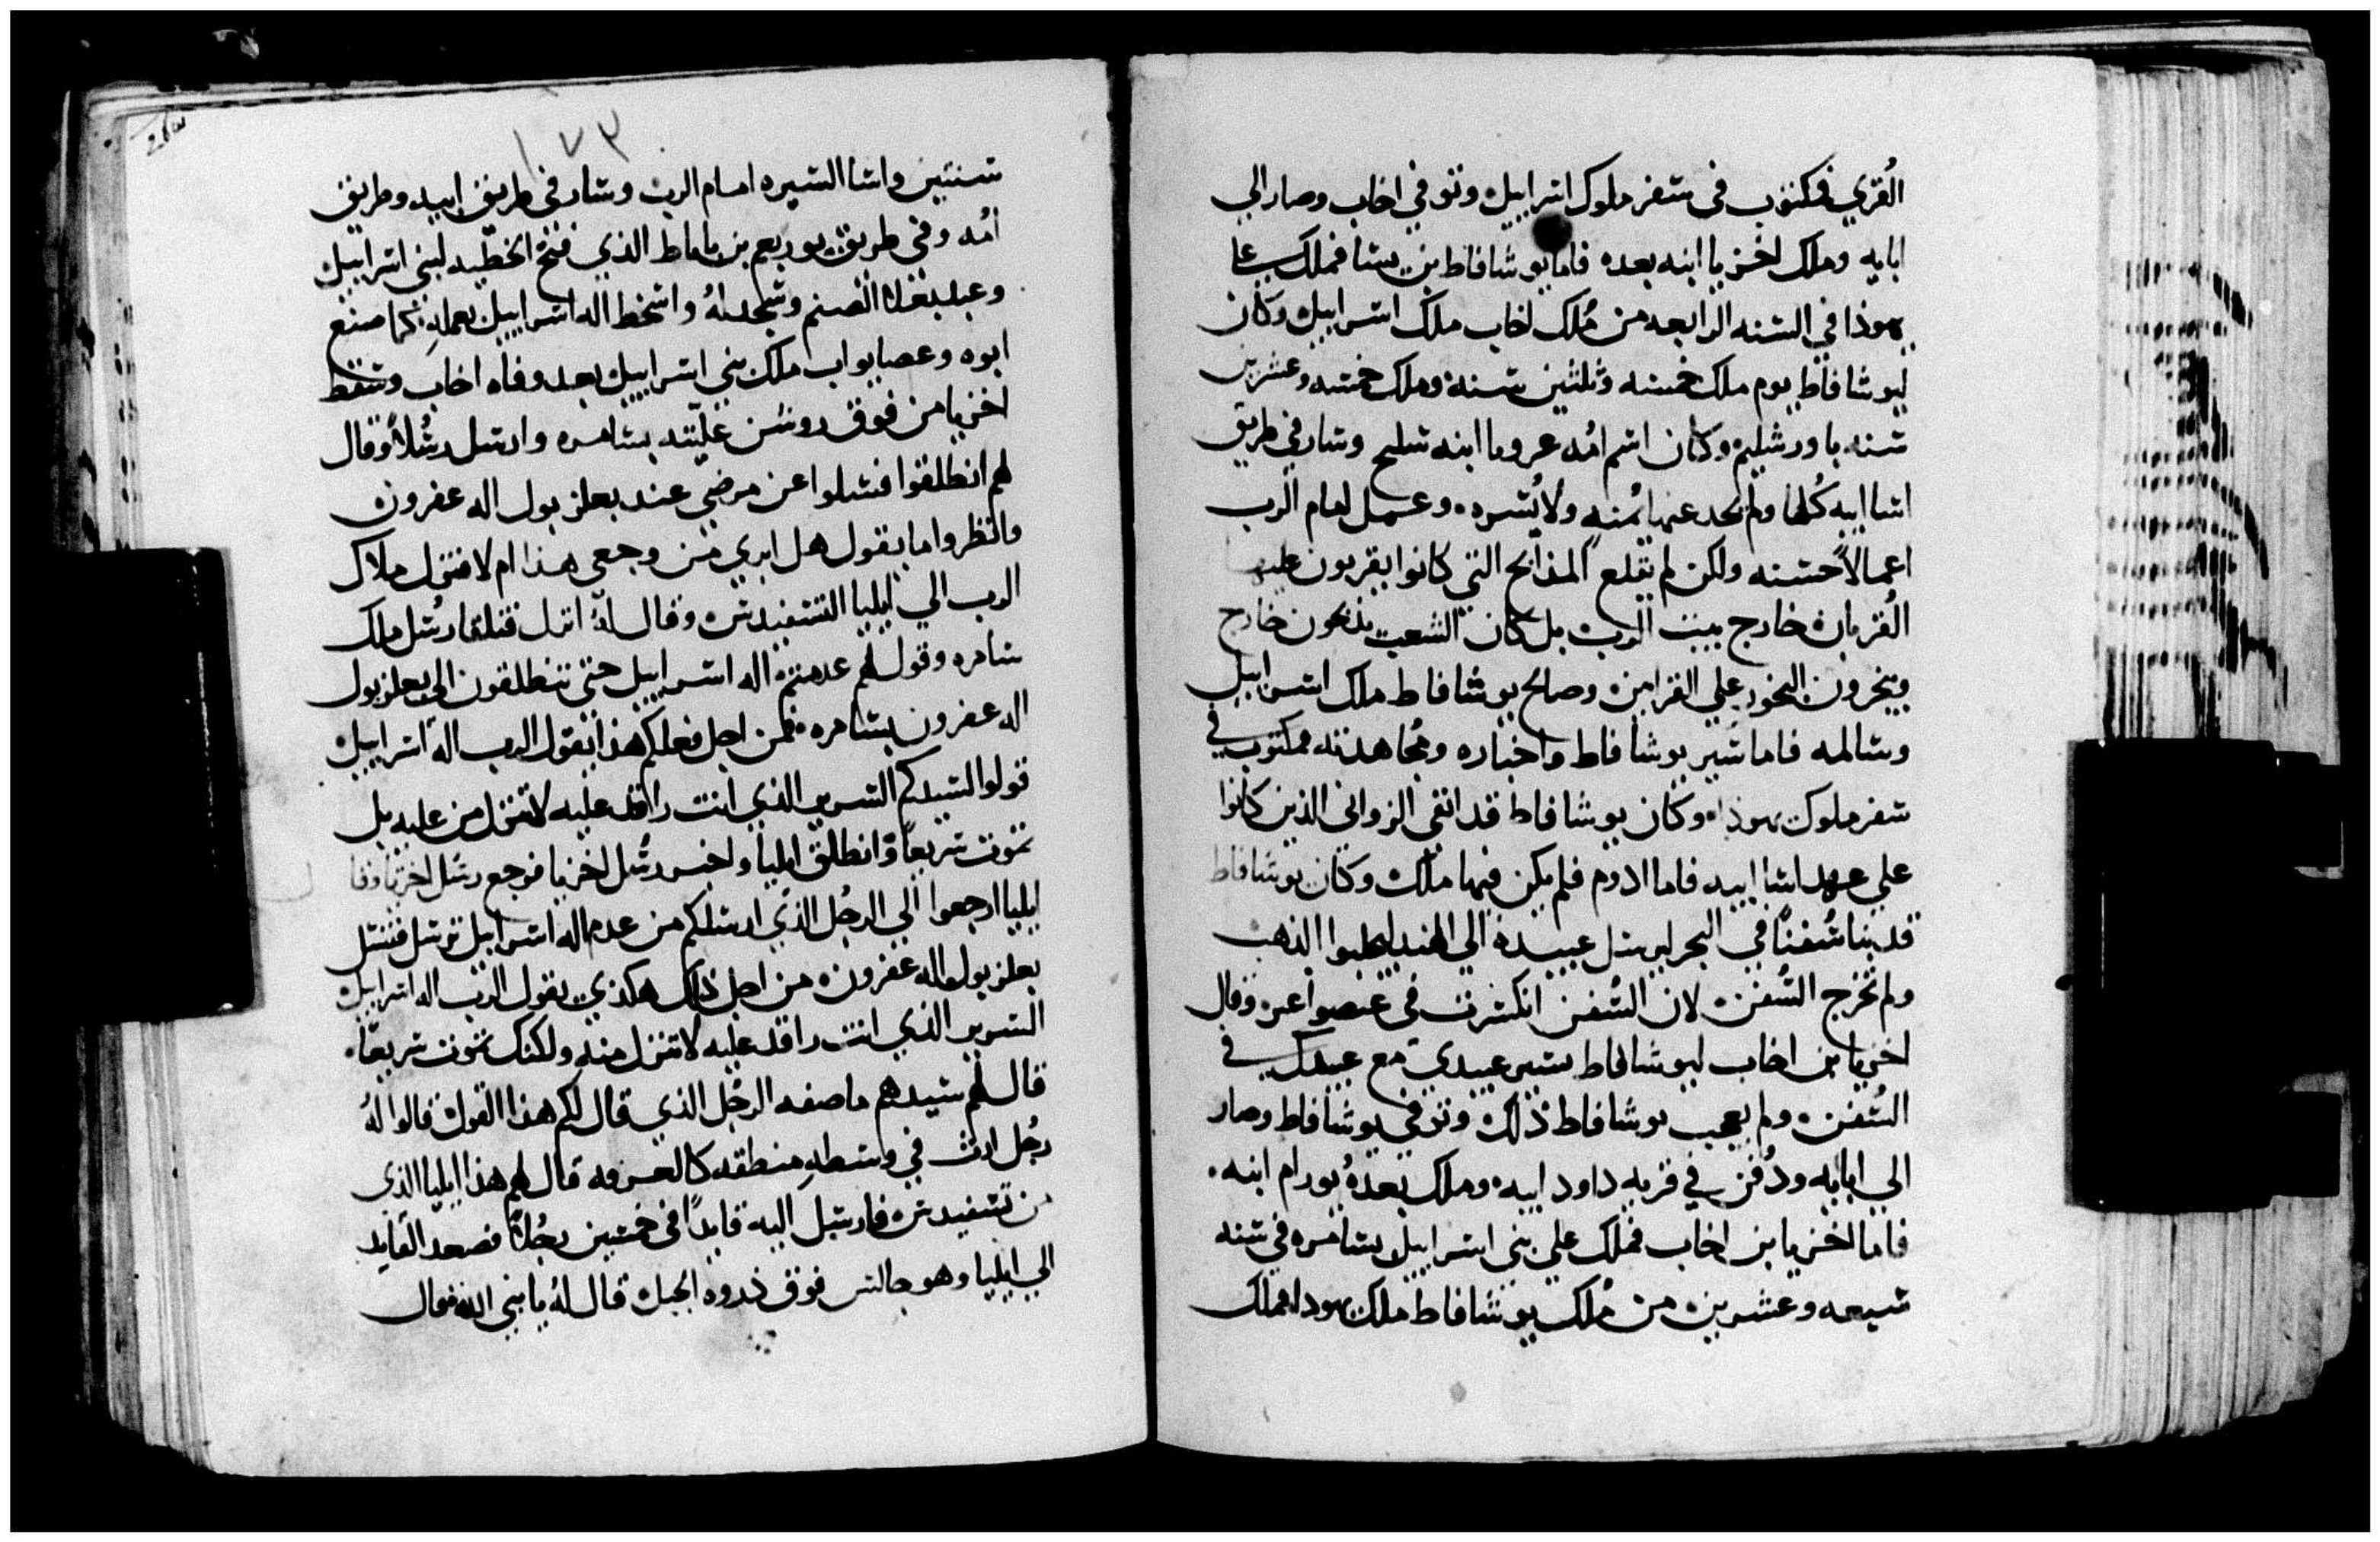 القري فمكتوب في سفر ملوك اسراييل وتوفي اخاب وصار الي
ابايه وملك اخزيا ابنه بعده فاما يوشافاط بن اسا فملك علي
يهوذا في السنه الرابعه من مُلك اخاب ملك اسراييل وكان
ليوشافاط يوم ملك خمسه وثلثين سنه وملك خمسه وعشرين
سنه باورشليم وكان اسم امُه عروبا ابنه سلح وسار في طريق
اسا ابيه كُلها ولم يحد عنها يُمنه ولا يُسره وعمل امام الرب
اعمالاً حسنه ولكن لم يقلع المذابح التي كانوا يقربون عليها
القُربان خارج بيت الرب بل كان الشعب يذبحون خارج
ويبخرون البخور علي القرابين وصالح يوشافاط ملك اسراييل
وسالمه فاما سير يوشافاط واخباره ومُجاهدته فمكتوب في
سفر ملوك يهوذا وكان يوشافاط قد انفي الزواني الذين كانوا
علي عهد اسا ابيه فاما ادوم فلم يكن فيها ملك وكان يوشافاط
قد بنا سُفناً في البحر ليرسل عبيده الي الهند ليجلبوا الذهب
ولم تخرج السُفن لان السُفن انكسرت في عصو اعبر وقال
اخزيا بن اخاب ليوشافاط يسير عبيدي مع عبيدك في
السُفن ولم يعجب يوشافاط ذلك وتوفي يوشافاط وصار
الي ابايه ودُفن في قريه داود ابيه وملك بعدهُ يورام ابنه
فاما اخزيا بن اخاب فملك علي بني اسراييل بسامره في سنه
سبعه وعشرين من مُلك يوشافاط ملك يهودا فملك
١٧٣
سنتين واسا السيره امام الرب وسار في طريق ابيه وطريق
امُه وفي طريق يوربعم بن ناباط الذي فتح الخطيه لبني اسراييل
وعبد بغلا الصنم وسجد لهُ واسخط اله اسراييل بعمله كما صنع
ابوه وعصا يواب ملك بني اسراييل بعد وفاه اخاب وسقط
اخزيا من فوق روشن عليّته بسامره وارسل رسُلاً وقال
لهم انطلقوا فسلوا عن مرضي عند بعلزبول اله عفرون
وانظروا ما يقول هل ابري من وجعي هذا ام لا فنزل ملاك
الرب الي ايليا التسفيدس وقال لهُ انزل فتلقا رسُل ملك
سامره وقول لهم عدمتم اله اسراييل حتي تنطلقون الي بعلزبول
اله عفرون بسامره فمن اجل فعلكم هذا يقول الرب اله اسراييل
قولوا لسيدكم السرير الذي انت راقد عليه لا تنزل من عليه بل
تموت سريعاً وانطلق ايليا واخبر رسُل اخزيا فرجع رسُل اخزيا وقا
ايليا ارجعوا الي الرجُل الذي ارسلكم من عدم اله اسراييل ترسل فتسل
بعلزبول اله عفرون من اجل ذلك هكذي يقول الرب اله اسراييل
السرير الذي انت راقد عليه لا تنزل منه ولكنك تموت سريعاً
قال لهم سيدهم ما صفه الرجُل الذي قال لكم هذا القول قالوا لهُ
رجُل ارث في وسطه منطقه قال لهم هذا ايليا الذي
من تسفيدس فارسل اليه قايداً في خمسين رجُلاً فصعد القايد
الي ايليا وهو جالس فوق ذروه الجبل قال لهُ يا نبي الله فقال